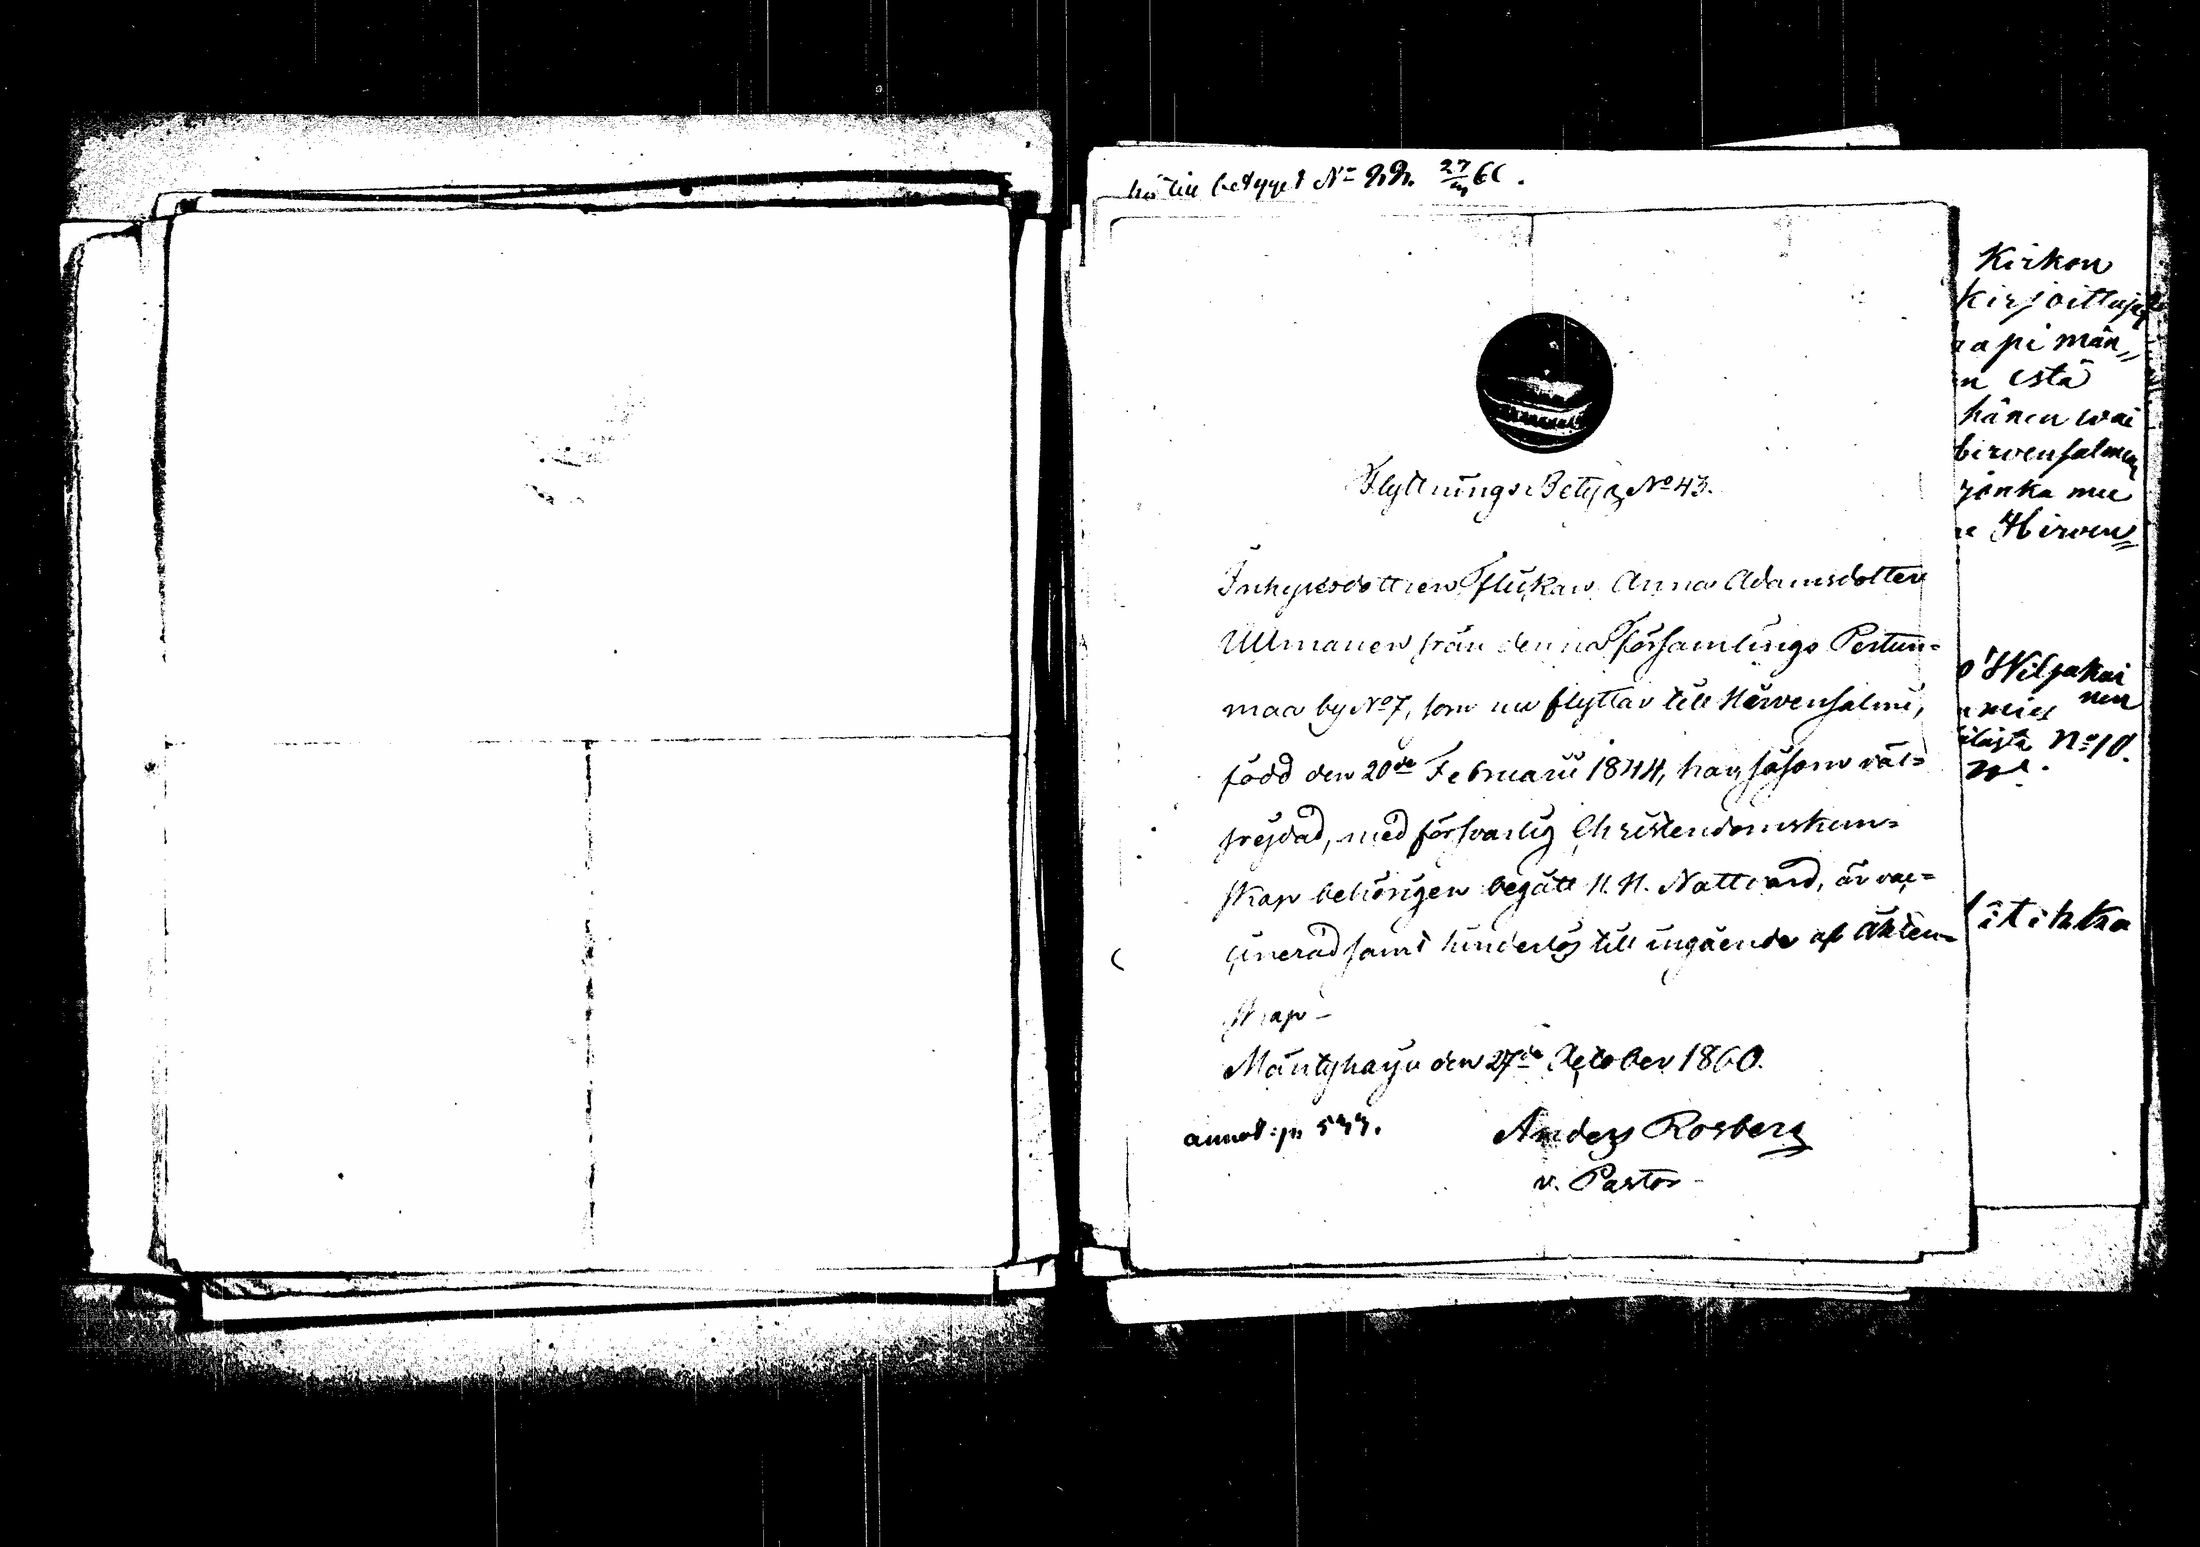 hör till betyget No 22. 27/10 60.
Flyttnings Betyg No 43.
Inhysesdottren Flickan Anna Adamsdotter
Ullmanen från denna församlings Pertun-
maa by No 7, som nu flyttar till Hirvensalmi,
född den 20de Februarii 1844, har såsom väl-
frejdad, med försvarlig Christendomskun-
skap behörigen begått H. H. Nattvard, är vac-
cinerad samt hinderlös till ingående af Äkten-
skap -
Mäntyharju den 27de October 1860.
annot: p. 577.
Anders Rosberg
v. Pastor -
Kirkon
kirjoittaja
api män„
n estä
hänen wai
hirvensalmen
jonka mu
Hirven„
Wilpakai
nen
mies
No 10.
itikka